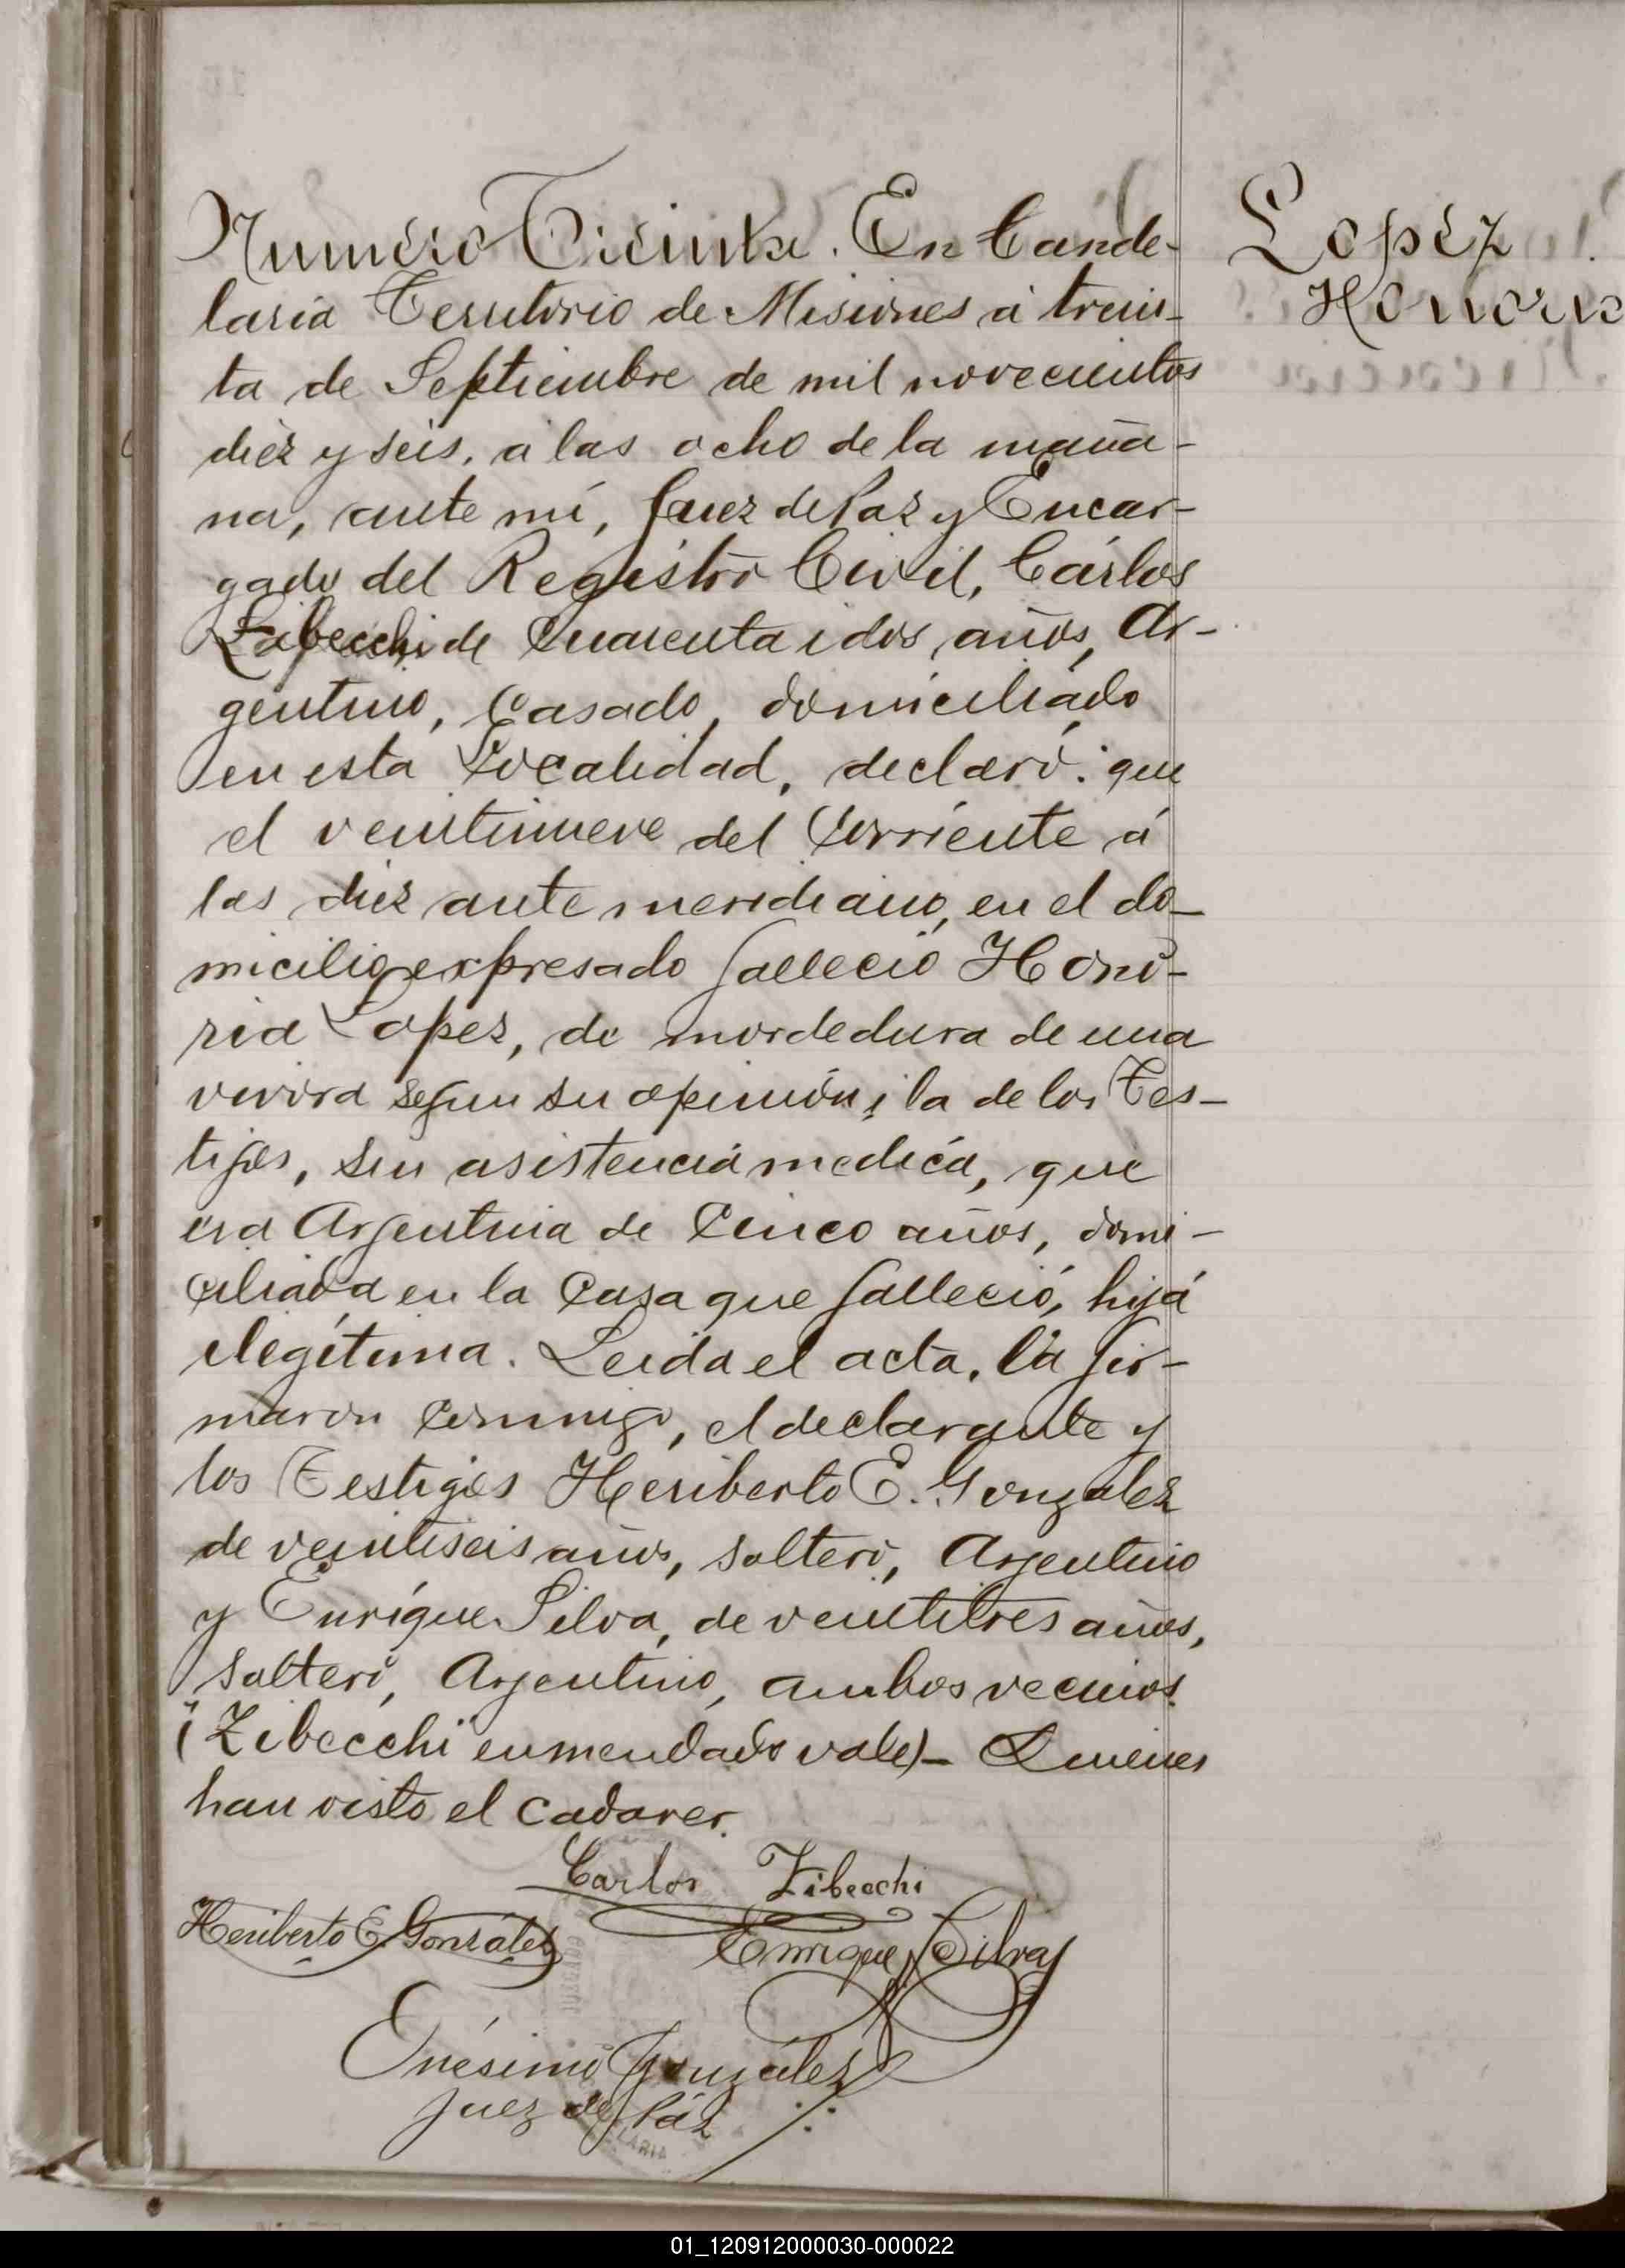 Numero Treinta. En Cande-
laria Territorio de Misiones á trein-
ta de Septiembre de mil novecientos
diez y seis, á las ocho de la maña-
na, ante mi, Juez de Paz y Encar-
gado del Registro Civil, Cárlos
Zibecchi de Cuarenta i dos años, Ar-
gentino, Casado, domiciliado
en esta Localidad, declaró: que
el veintinueve del Corriente á
las diez ante meridiano, en el do-
micilio expresado falleció Hono-
ria Lopez, de mordedura de una
vivora segun su opinión i la de los Tes-
tigos, sin asistencia medica, que
era Argentina de Cinco años, domi-
ciliada en la Casa que falleció, hija
ilegítima. Leida el acta, la fir-
maron conmigo, el declarante y
los Testigos Heriberto E. Gonzalez
de veintiseis años, soltero, Argentino
y Enrique Silva, de veintitres años,
soltero, Argentino, ambos vecinos.
(“Zibecchi” enmendado vale)- Quienes
han visto el cadaver.
Carlos Zibecchi
Heriberto E. González
Enrique Silva
Onésimo González
Juez de Páz
Lopez
Honoria
01_120912000030-000022